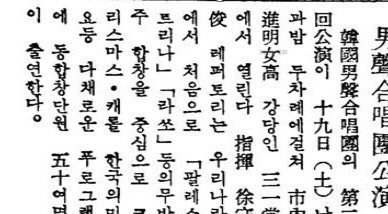 男聲合唱團公演
韓國男聲合唱團의 第
回公演이 十九日(土)
과밤 두차례에걸쳐 市
進明女高 강당인 三一
에서 열린다 指揮 徐
俊 레퍼토리는 우리나라
에서 처음으로 「팔레스
트리나」「라쏘」등의무반
주 합창을 중심으로 크
리스마스·캐롤 한국의민
요등 다채로운 푸로그램
에 동합창단원 五十여명
이 출연한다。